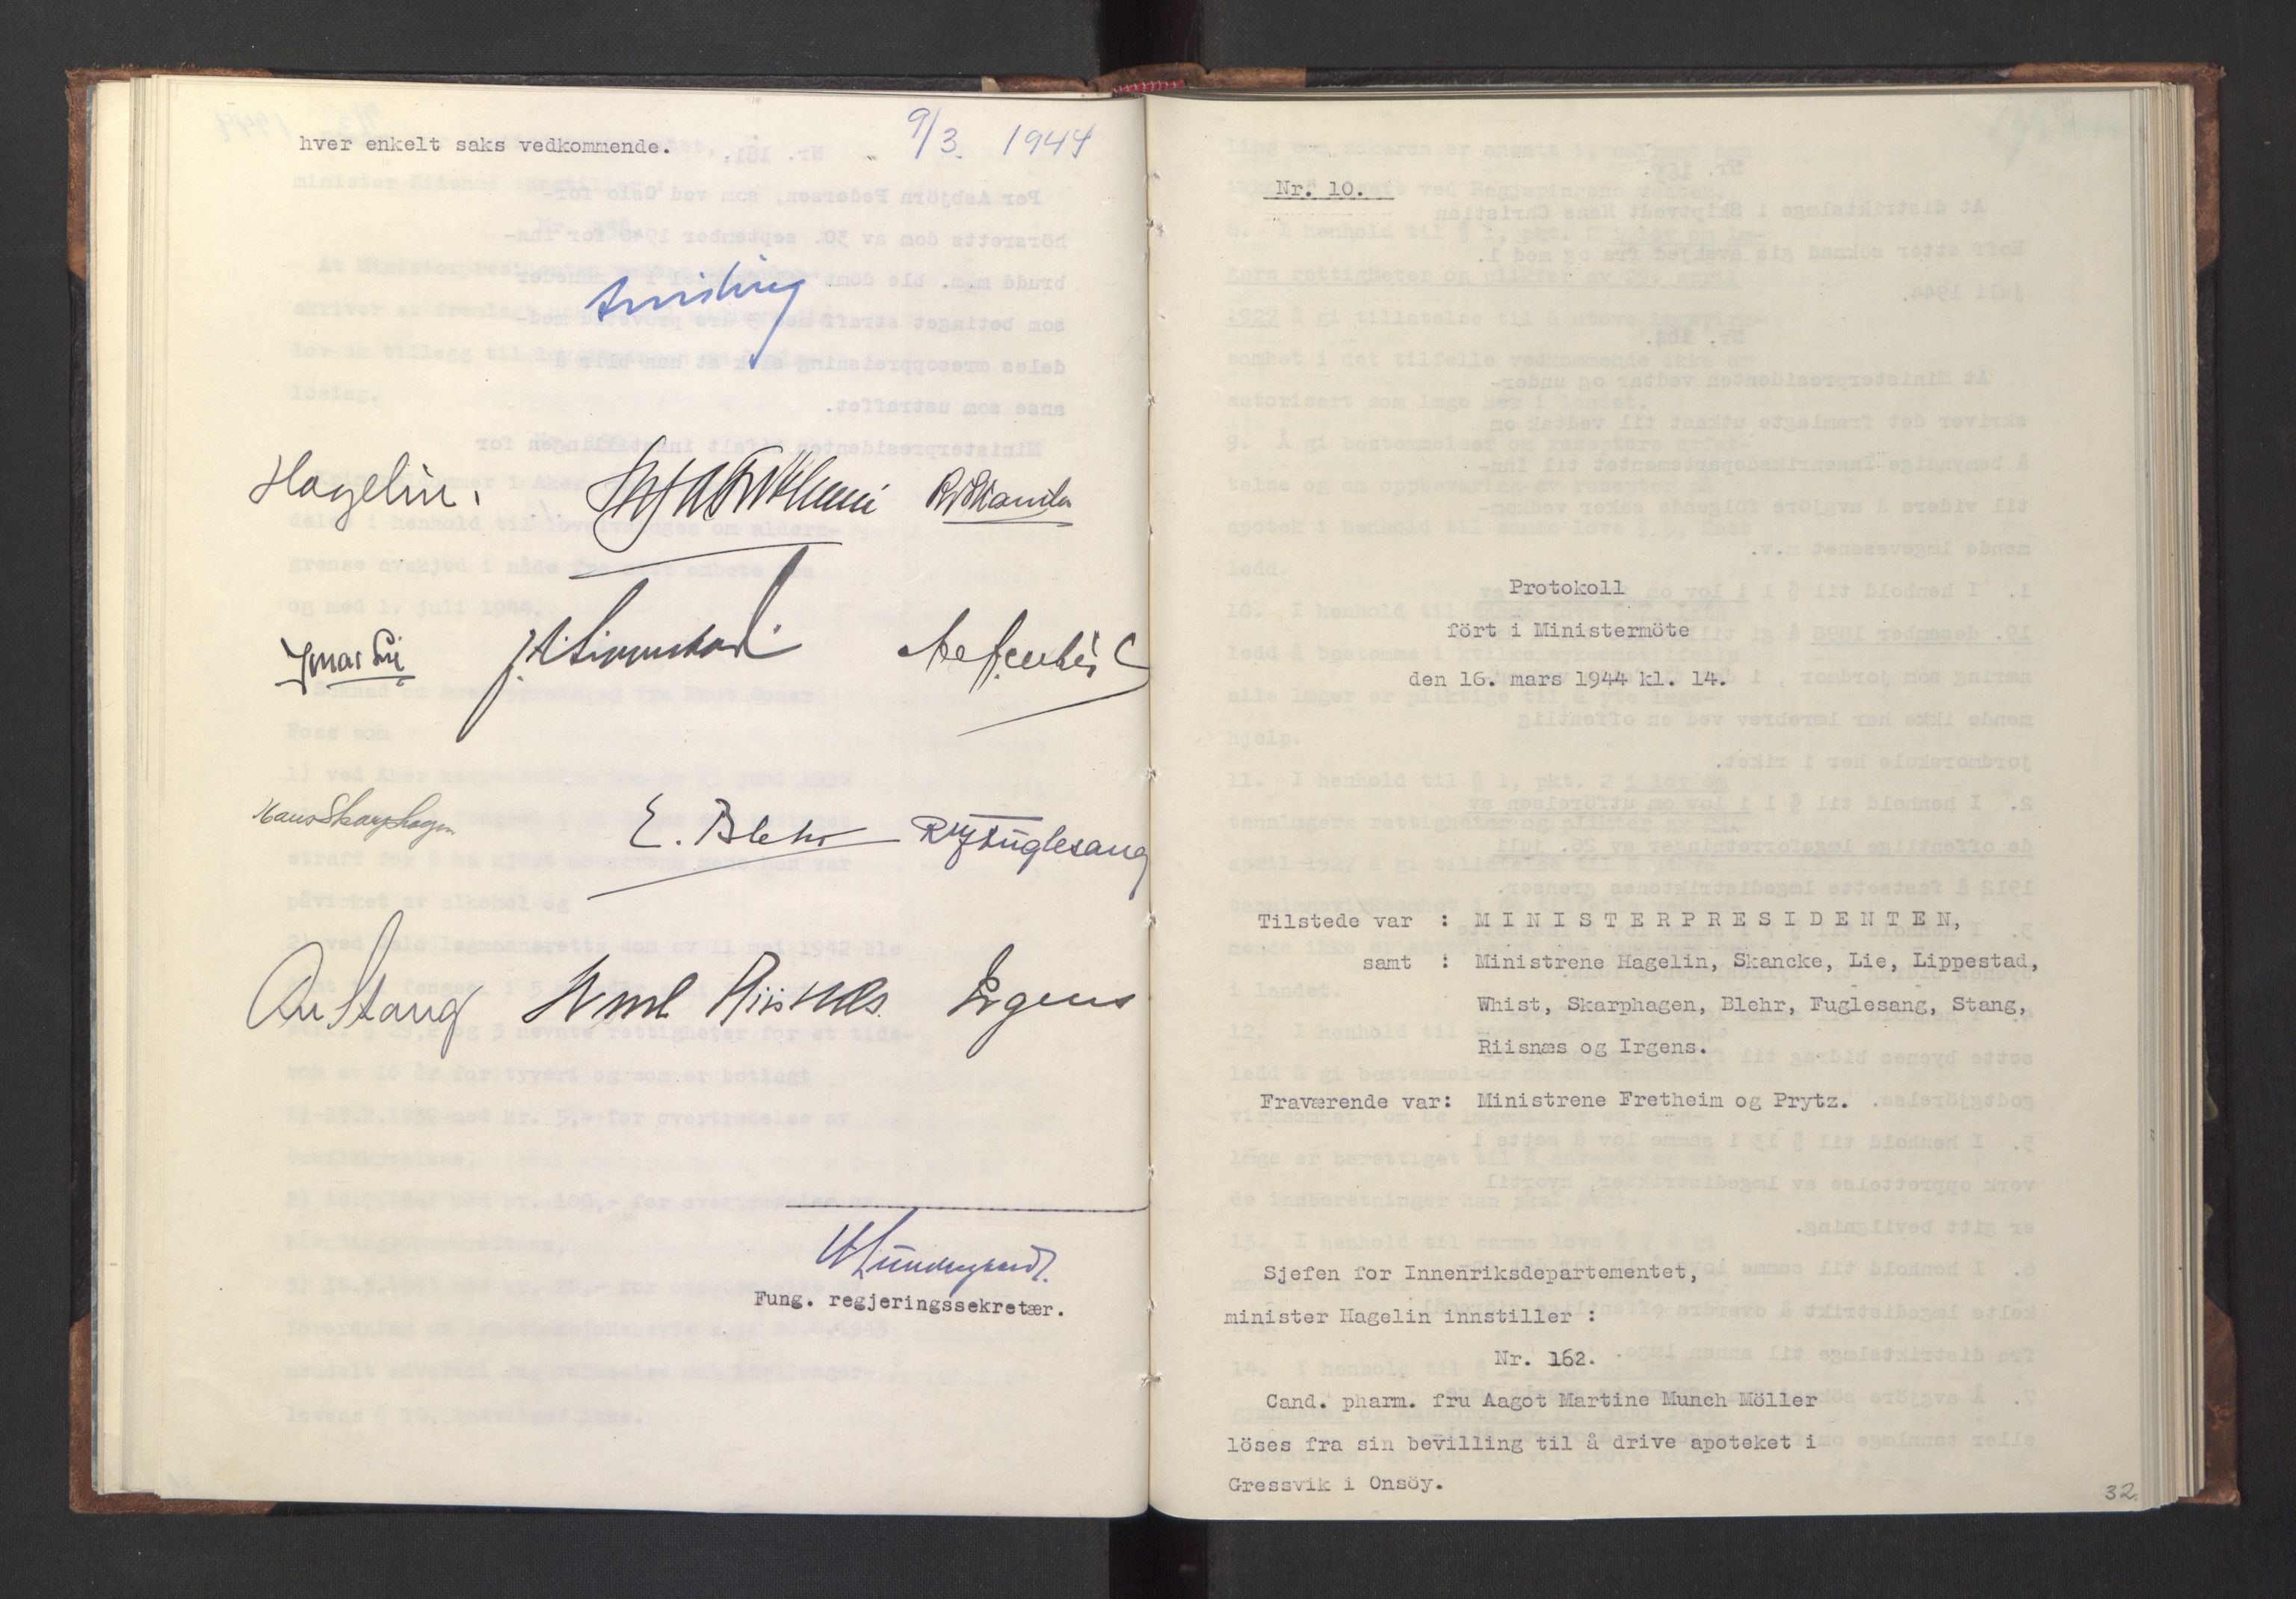 hver enkelt saks vedkommende.
9/3. 1944
Quisling
Hagelin.
R Skancke
Jonas Lie
J. Lippestad
Hans Skarphagen
E. Blehr
R J Fuglesang
Axel Stang
Sverre Riisnæs.
Irgens
Fung. regjeringssekretær.
Nr. 10.
Protokoll
fört i Ministermöte
den 16. mars 1944 kl. 14.
Tilstede var : MINISTERPRESIDENTEN,
samt : Ministrene Hagelin, Skancke, Lie, Lippestad,
Whist, Skarphagen, Blehr, Fuglesang, Stang,
Riisnæs og Irgens.
Fraværende var: Ministrene Fretheim og Prytz.
Sjefen for Innenriksdepartementet,
minister Hagelin innstiller :
Nr. 162.
Cand. pharm. fru Aagot Martine Munch Möller
löses fra sin bevilling til å drive apoteket i
Gressvik i Onsöy.
32.